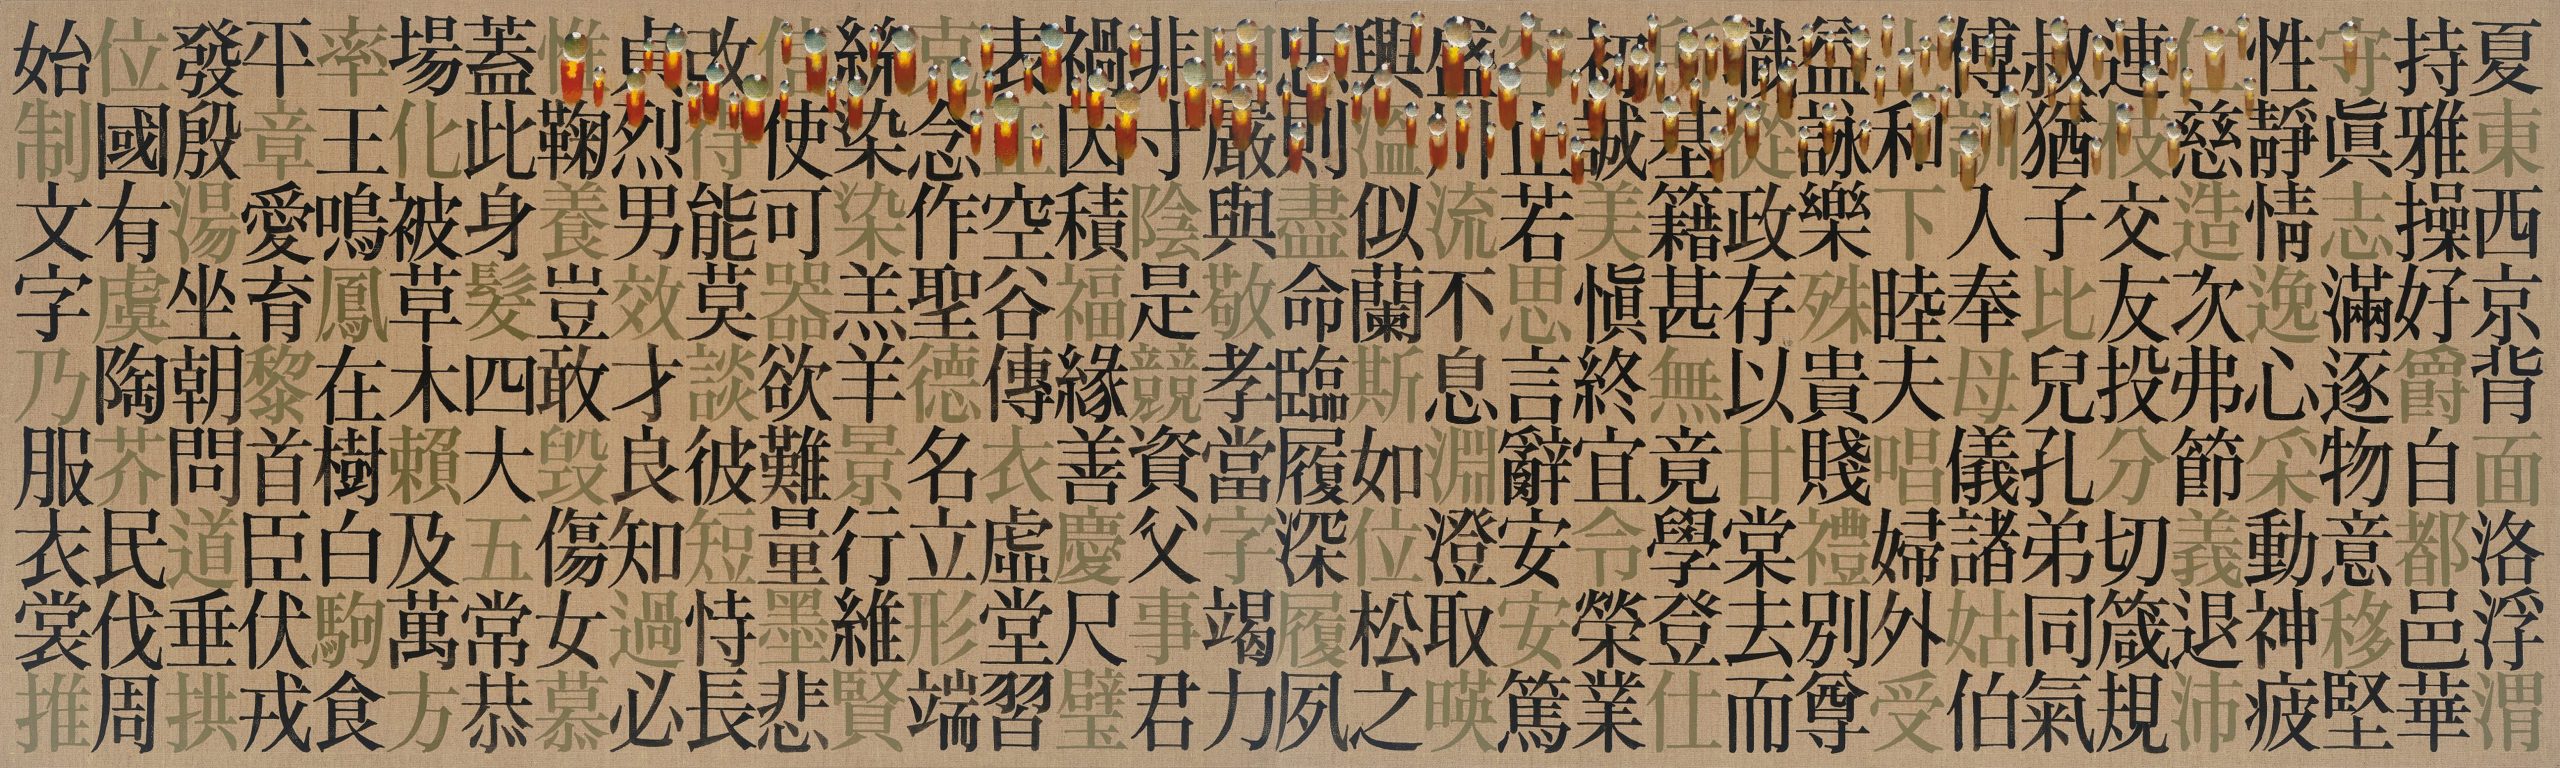 始制文字乃服衣裳推
位國有虞陶芥民伐周
發殷湯坐朝問道垂拱
平章愛育黎首臣伏戎
率王鳴鳳在樹白駒食
場化被草木賴及萬方
蓋此身髮四大五常恭
惟鞠養豈敢毁傷女慕
貞烈男效才良知過必
改得能莫談彼短恃長
信使可器欲難量墨悲
絲染染羔羊景行維賢
克念作聖德名立形端
表正空谷傳衣虛堂習
禍因積福緣善慶尺璧
非寸陰是競資父事君
曰嚴與敬孝當字竭力
忠則盡命臨履深履夙
興溫似蘭斯如位松之
盛川流不息淵澄取暎
容止若思言辭安安篤
初誠美愼終宜令榮業
所基籍甚無竟學登仕
職從政存以甘棠去而
益詠樂殊貴賤禮別尊
上和下睦夫唱婦外受
傅訓人奉母儀諸姑伯
叔猶子比兒孔弟同氣
連枝交友投分切箴規
仁慈造次弗節義退沛
性靜情逸心采動神疲
守眞志滿逐物意移堅
持雅操好爵自都邑華
夏東西京背面洛浮渭